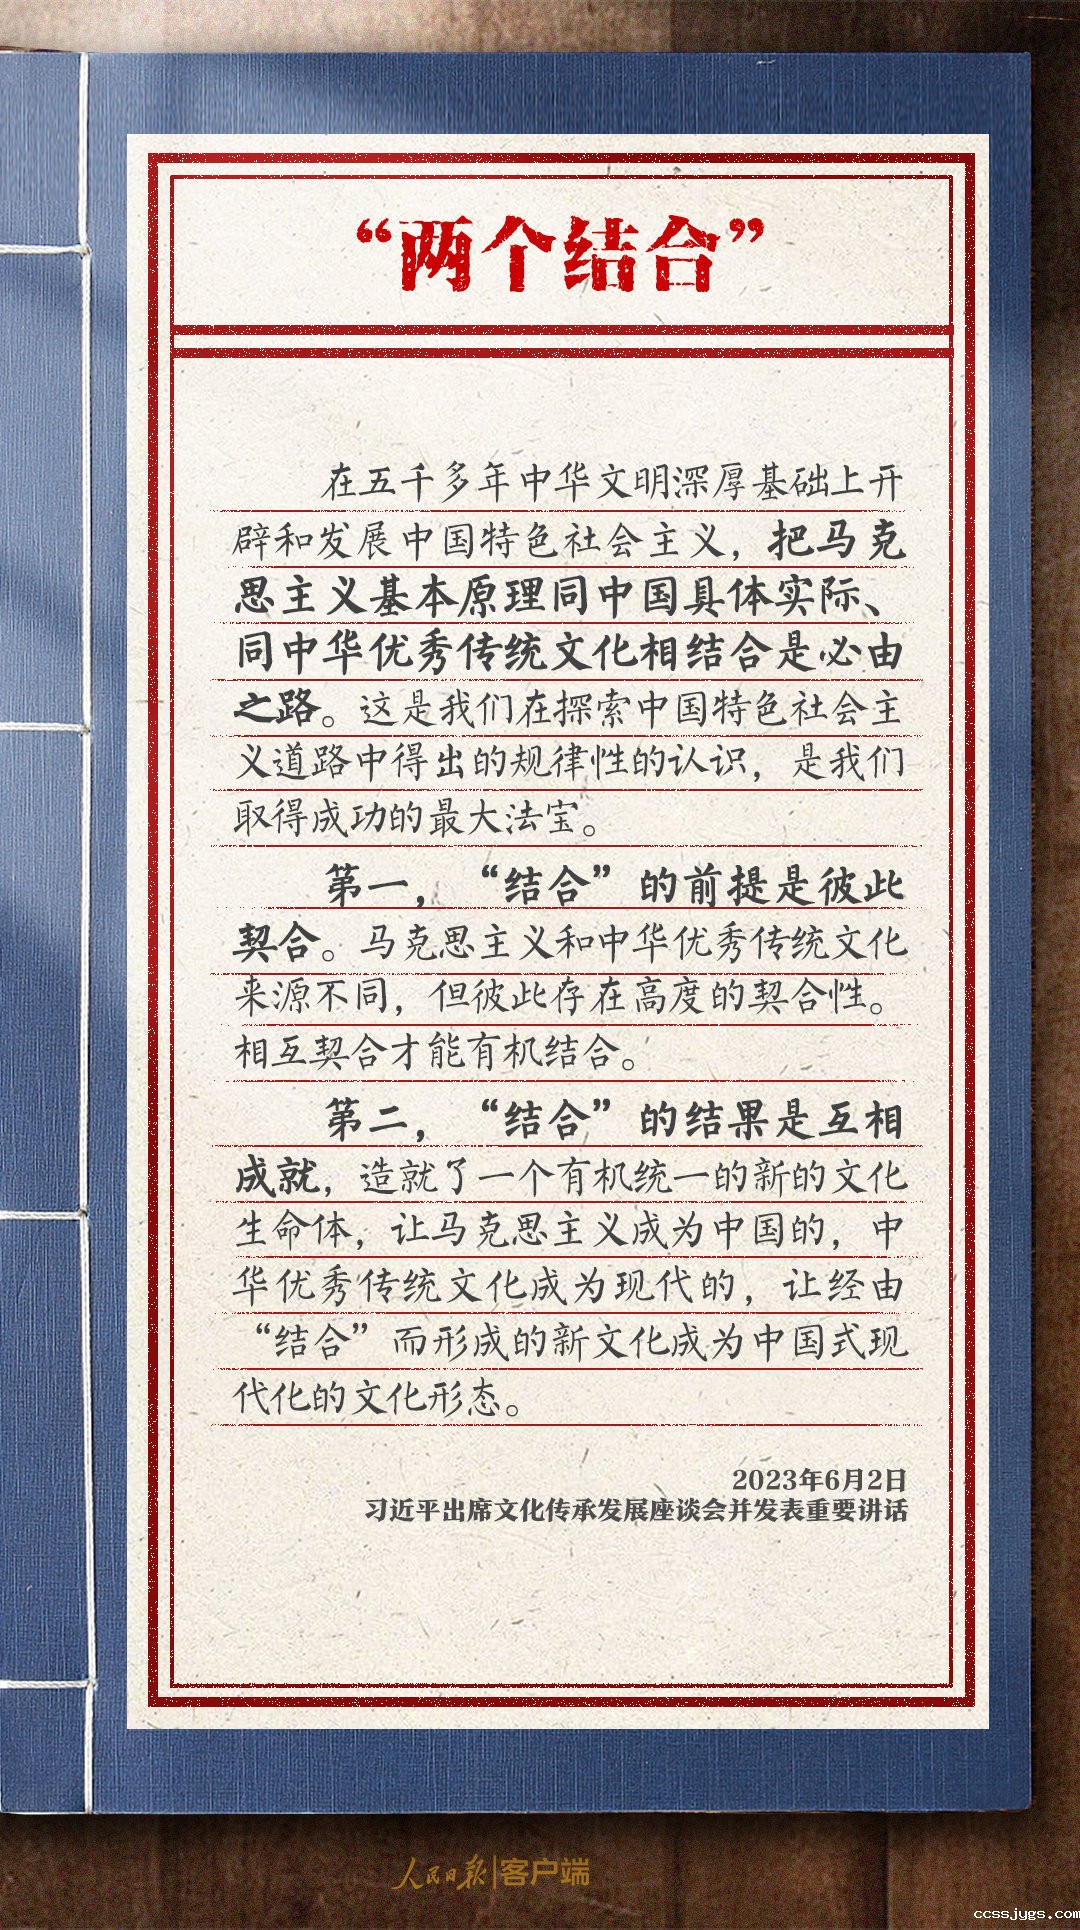 “两个结合”
在五千多年中华文明深厚基础上开
辟和发展中国特色社会主义，把马克
思主义基本原理同中国具体实际、
同中华优秀传统文化相结合是必由
之路。这是我们在探索中国特色社会主
义道路中得出的规律性的认识，是我们
取得成功的最大法宝。
第一，“结合”的前提是彼此
契合。马克思主义和中华优秀传统文化
来源不同，但彼此存在高度的契合性。
相互契合才能有机结合。
第二，“结合”的结果是互相
成就，造就了一个有机统一的新的文化
生命体，让马克思主义成为中国的，中
华优秀传统文化成为现代的，让经由
“结合”而形成的新文化成为中国式现
代化的文化形态。
2023年6月2日
习近平出席文化传承发展座谈会并发表重要讲话
人民日报|客户端
ccssjygs.com